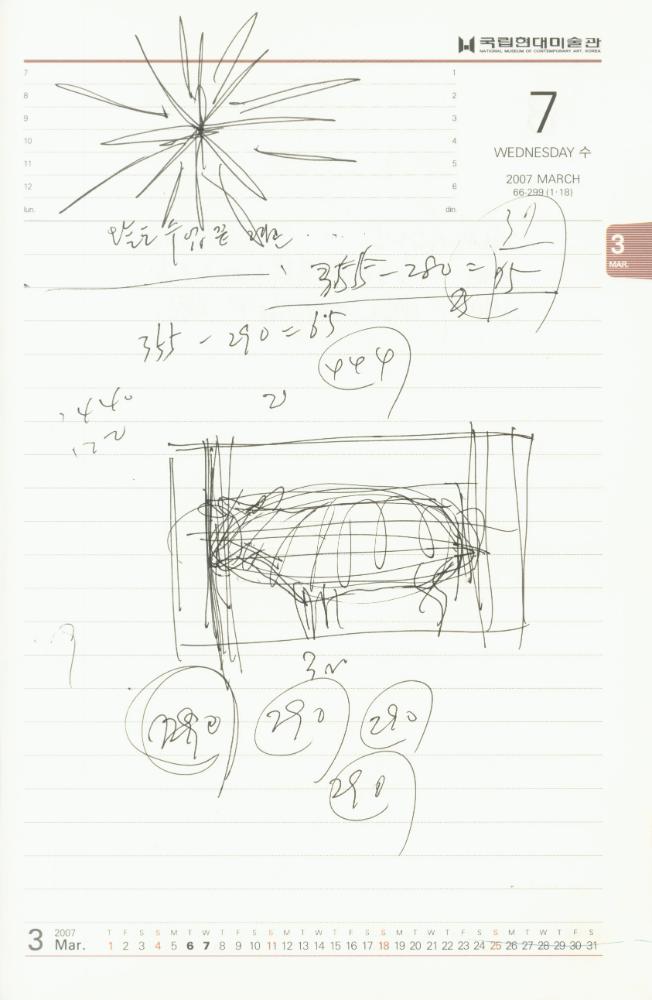 국립현대미술관
NATIONAL MUSEUM OF CONTEMPORARY ART, KOREA
7
8
9
10
11
12
lun.
1
2
3
4
5
6
din.
7
WEDNESDAY 수
2007 MARCH
66-299 (1·18)
3
MAR.
오늘도 수업 끝
355 - 280 =
355 - 290 = 65
444
440
290
290
290
290
3 2007 Mar.
T F S S M T W T F S S M T W T F S S M T W T F S S M T W T F S
1 2 3 4 5 6 7 8 9 10 11 12 13 14 15 16 17 18 19 20 21 22 23 24 25 26 27 28 29 30 31